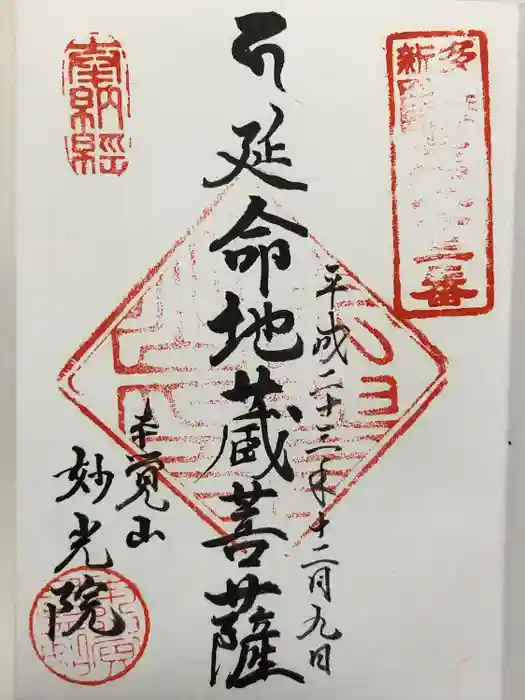 多
新四国
三番
平成二十三年十二月九日
延命地蔵菩薩
奉納経
本覚山
妙光院